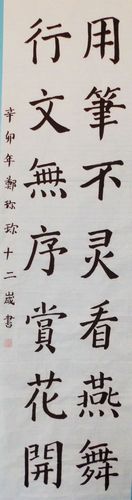 用筆不灵看燕舞
行文無序賞花開
辛卯年鄭琮琮十二歲書